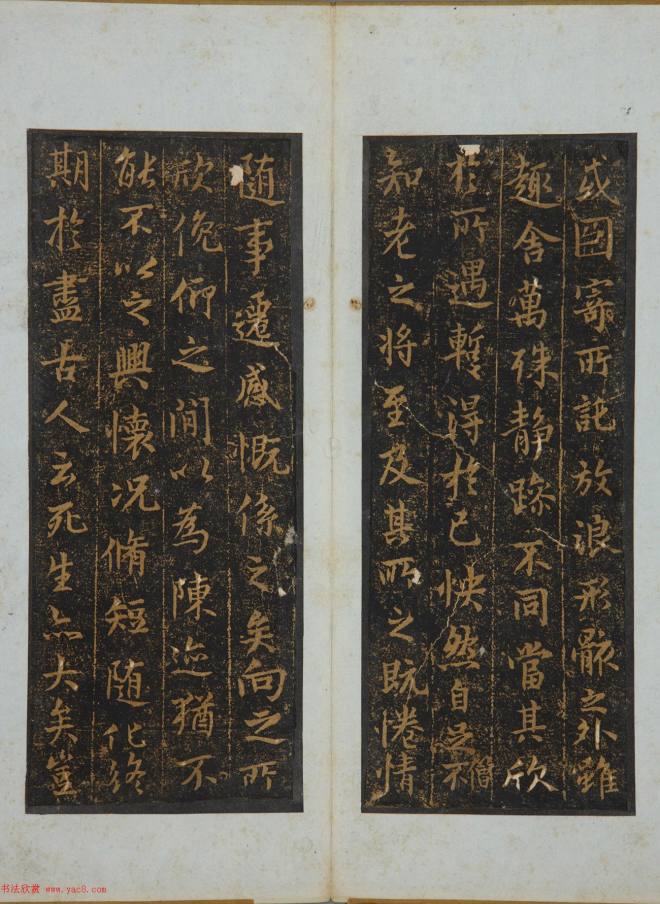 或因寄所託放浪形骸之外雖
趣舍萬殊静躁不同當其欣
扵所遇暫得扵己怏然自足不
知老之将至及其所之既惓情
随事遷感慨係之矣向之所
欣俛仰之間以為陳迹猶不
能不以之興懷况脩短随化終
期扵盡古人云死生亦大矣豈
书法欣赏 www.yac8.com